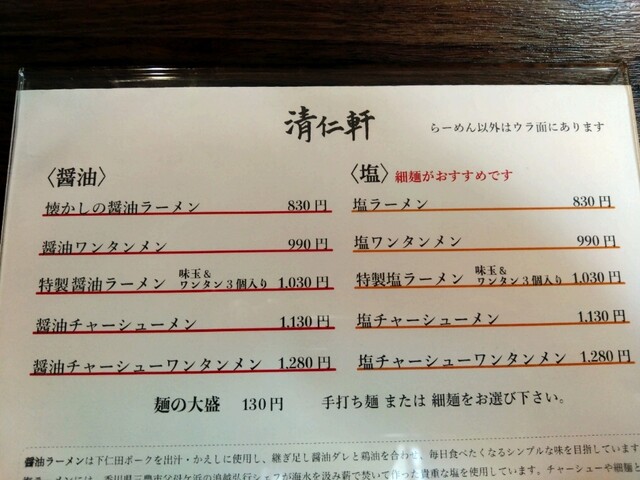 清仁軒
らーめん以外はウラ面にあります
〈醤油〉
懐かしの醤油ラーメン 830円
醤油ワンタンメン 990円
特製醤油ラーメン 味玉&ワンタン3個入り 1,030円
醤油チャーシューメン 1,130円
醤油チャーシューワンタンメン 1,280円
〈塩〉 細麺がおすすめです
塩ラーメン 830円
塩ワンタンメン 990円
特製塩ラーメン 味玉&ワンタン3個入り 1,030円
塩チャーシューメン 1,130円
塩チャーシューワンタンメン 1,280円
麺の大盛 130円 手打ち麺 または 細麺をお選び下さい。
醤油ラーメンは下仁田ポークを出汁・かえしに使用し、継ぎ足し醤油ダレと鶏油を合わせ、毎日食べたくなるシンプルな味を目指しています
シェフが海水を汲み薪で焚いて作った貴重な塩を使用しています。チャーシューや細麺と